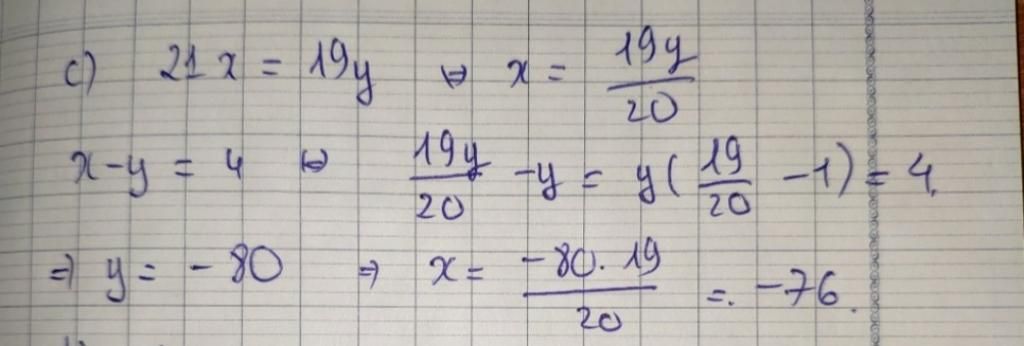 c) 21x = 19y ⇔ x = 19y/20
x-y = 4 ⇔ 19y/20 -y = y(19/20 -1) = 4.
⇒ y = -80 ⇒ x = -80.19/20 = -76.